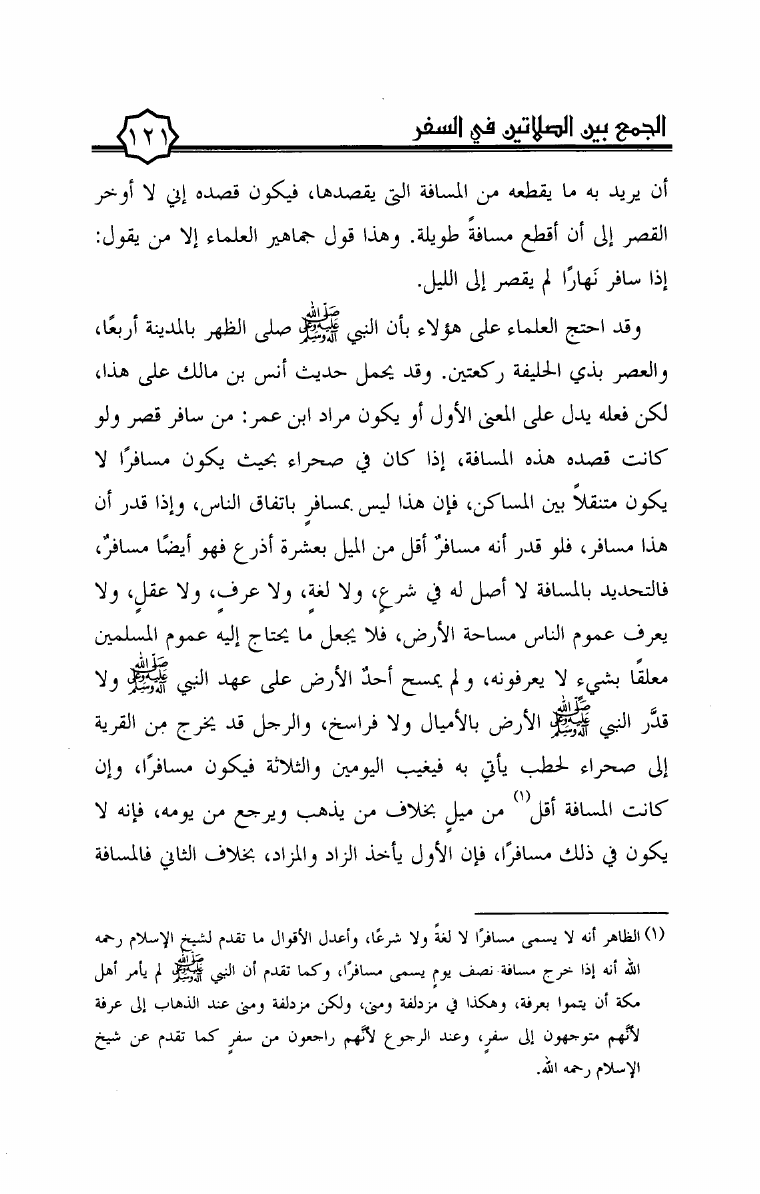 الجمع بين الصلاتين في السفر
١٢١
أن يريد به ما يقطعه من المسافة التي يقصدها، فيكون قصده إني لا أوخر
القصر إلى أن أقطع مسافةً طويلة. وهذا قول جماهير العلماء إلا من يقول:
إذا سافر نَهارًا لم يقصر إلى الليل.
وقد احتج العلماء على هؤلاء بأن النبي ﷺ صلى الظهر بالمدينة أربعًا،
والعصر بذي الحليفة ركعتين. وقد يحمل حديث أنس بن مالك على هذا،
لكن فعله يدل على المعنى الأول أو يكون مراد ابن عمر: من سافر قصر ولو
كانت قصده هذه المسافة، إذا كان في صحراء بحيث يكون مسافرًا لا
يكون متنقلاً بين المساكن، فإن هذا ليس بمسافرٍ باتفاق الناس، وإذا قدر أن
هذا مسافر، فلو قدر أنه مسافرٌ أقل من الميل بعشرة أذرع فهو أيضًا مسافرٌ،
فالتحديد بالمسافة لا أصل له في شرعٍ، ولا لغةٍ، ولا عرفٍ، ولا عقلٍ، ولا
يعرف عموم الناس مساحة الأرض، فلا يجعل ما يحتاج إليه عموم المسلمين
معلقًا بشيءٍ لا يعرفونه، ولم يمسح أحدٌ الأرض على عهد النبي ﷺ ولا
قدَّر النبي ﷺ الأرض بالأميال ولا فراسخ، والرجل قد يخرج من القرية
إلى صحراء لحطب يأتي به فيغيب اليومين والثلاثة فيكون مسافرًا، وإن
كانت المسافة أقل(١) من ميلٍ بخلاف من يذهب ويرجع من يومه، فإنه لا
يكون في ذلك مسافرًا، فإن الأول يأخذ الزاد والمزاد، بخلاف الثاني فالمسافة
(١) الظاهر أنه لا يسمى مسافرًا لا لغةً ولا شرعًا، وأعدل الأقوال ما تقدم لشيخ الإسلام رحمه
الله أنه إذا خرج مسافة نصف يومٍ يسمى مسافرًا، وكما تقدم أن النبي ﷺ لم يأمر أهل
مكة أن يتموا بعرفة، وهكذا في مزدلفة ومنى، ولكن مزدلفة ومنى عند الذهاب إلى عرفة
لأنَّهم متوجهون إلى سفرٍ، وعند الرجوع لأنَّهم راجعون من سفرٍ كما تقدم عن شيخ
الإسلام رحمه الله.